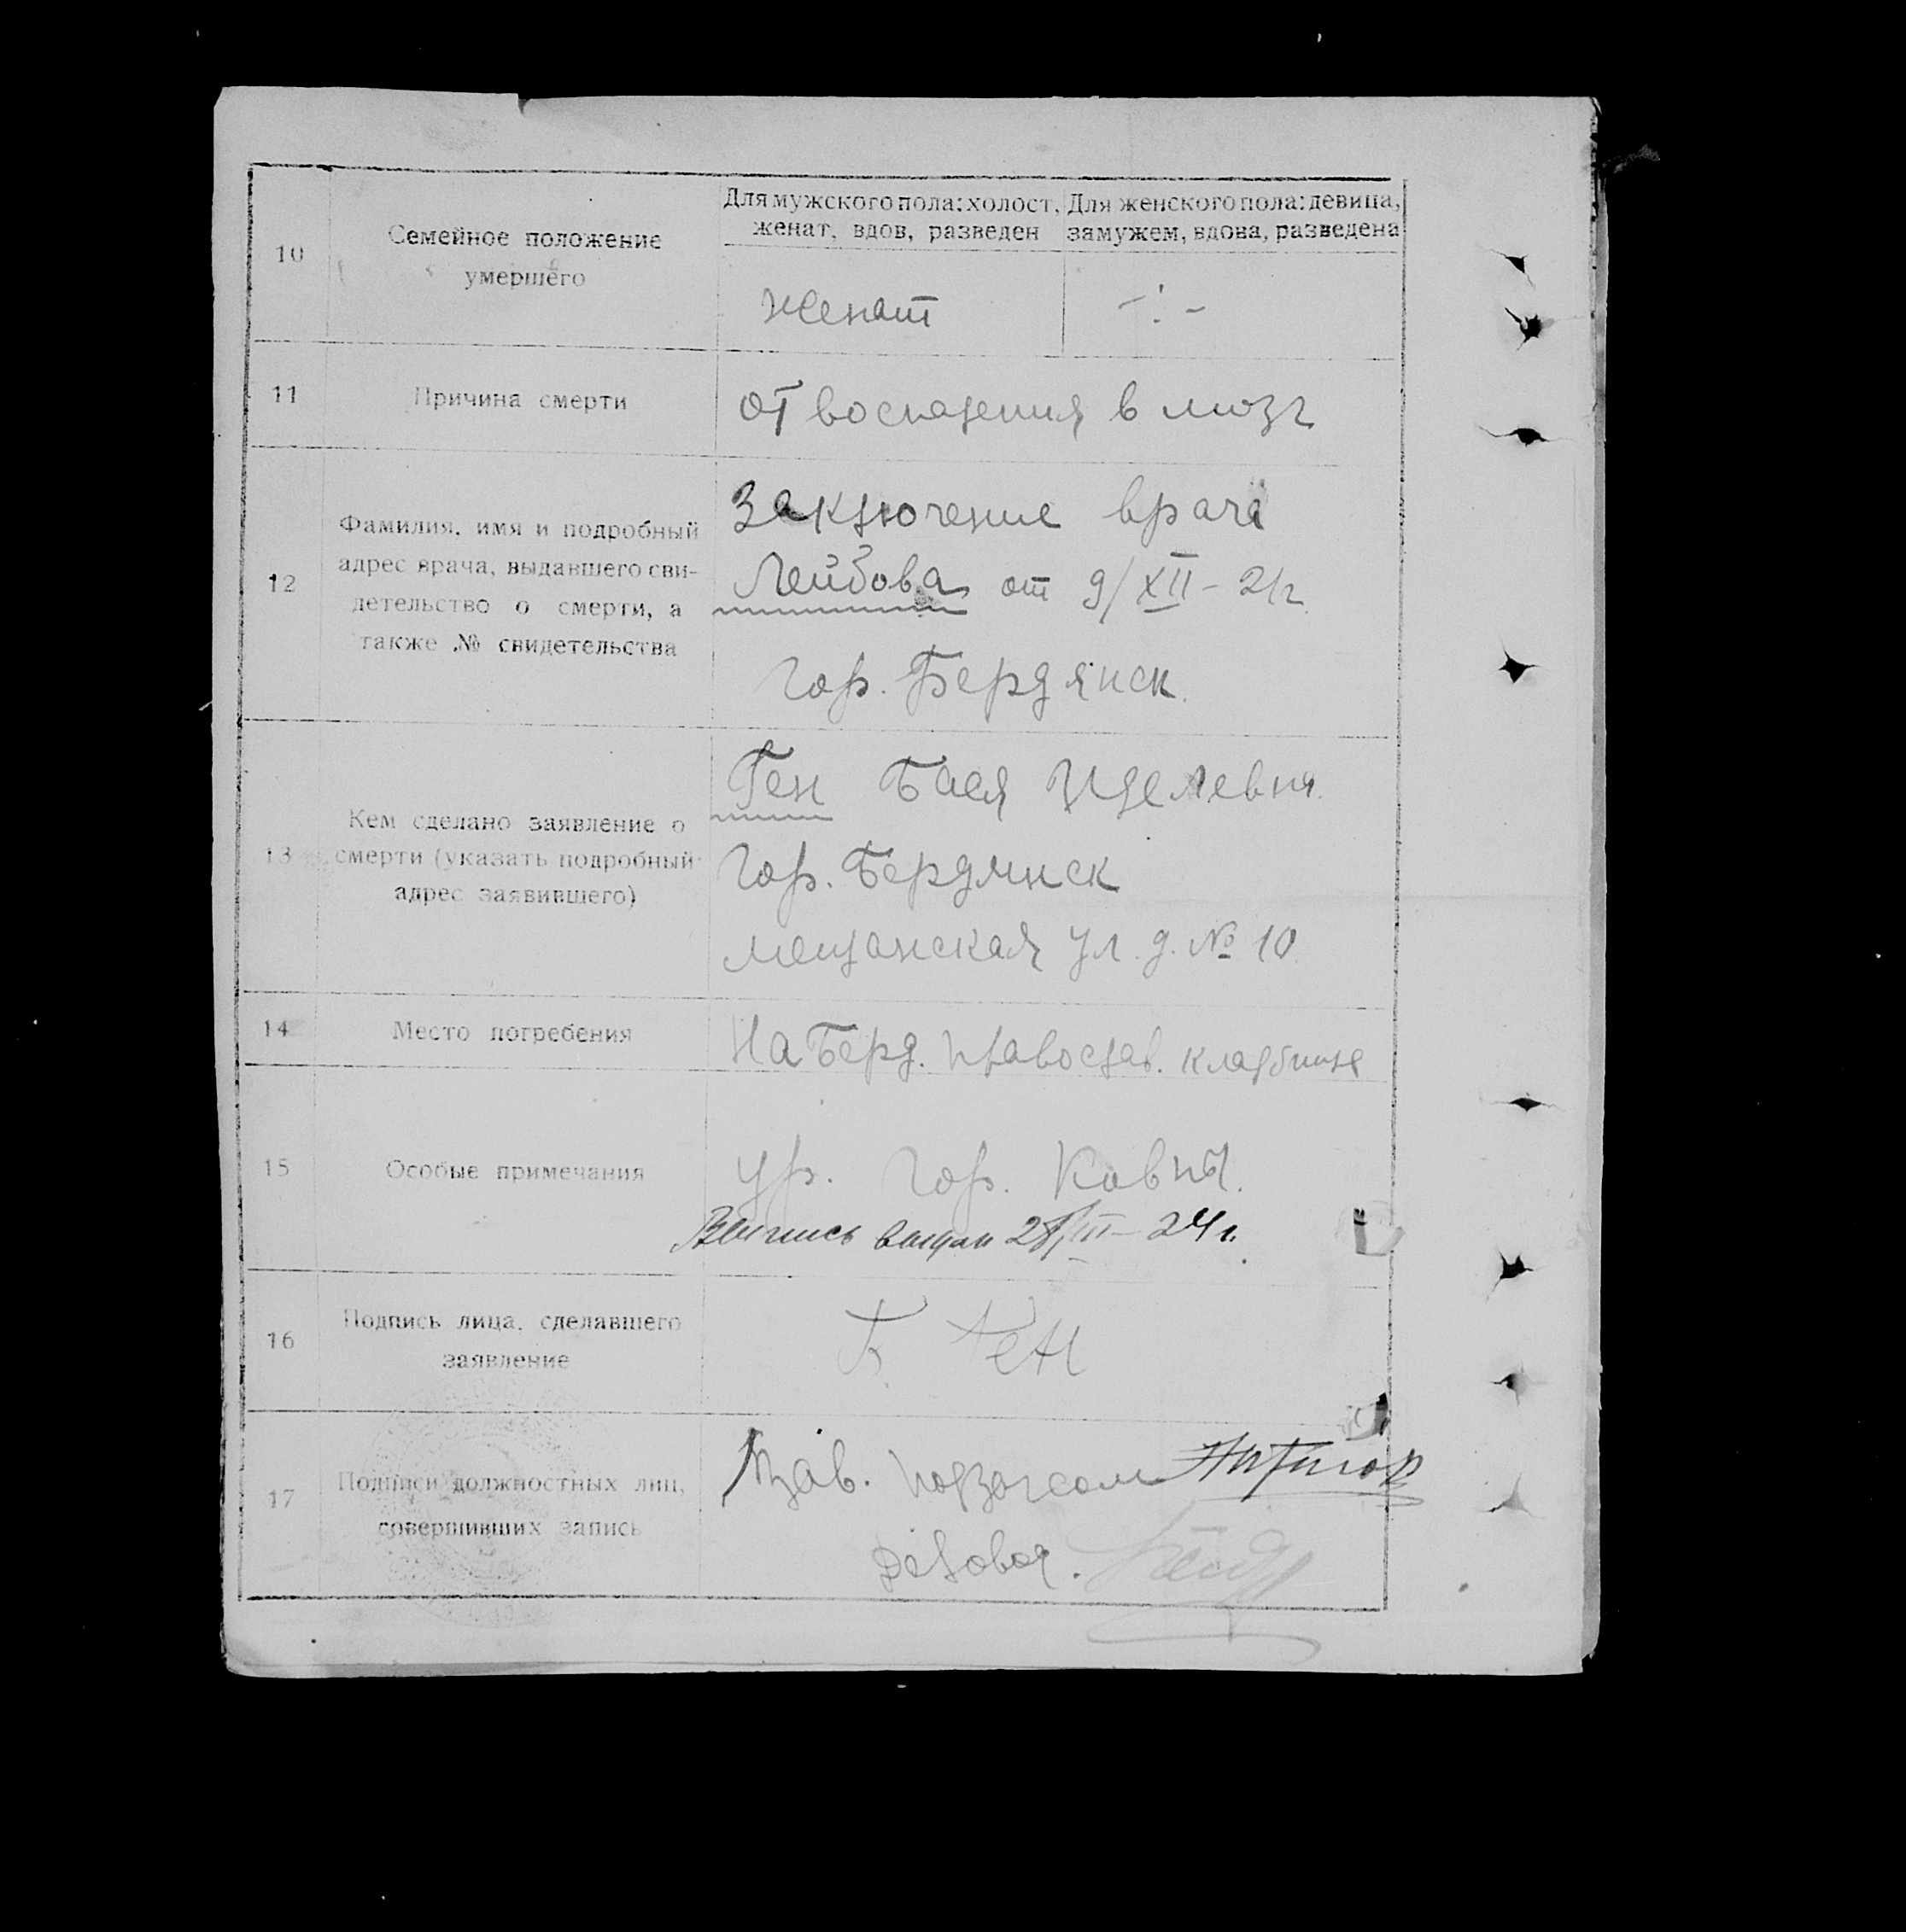 Для мужского пола: холост, женат, вдов, разведен
Для женского пола: девица, замужем, вдова, разведена
10
Семейное положение
умершего
женат
-:-
11
Причина смерти
от воспаления в мозг
12
Фамилия, имя и подробный
адрес врача, выдавшего сви-
детельство о смерти, а
также № свидетельства
Заключение врача
Лейбова от 9/XII - 21г.
гор. Бердянск.
13
Кем сделано заявление о
смерти (указать подробный
адрес заявившего)
Ген Бася Иделевна
Гор. Бердянск
мещанская ул. д. № 10
14
Место погребения
На Берд. православ. кладбище
15
Особые примечания
ур. гор. Ковны.
выдан 28/III - 24 г.
16
Подпись лица, сделавшего
заявление
Б Ген
17
Подписи должностных лиц,
совершивших запись
Зав. подзагсом
Деловод.